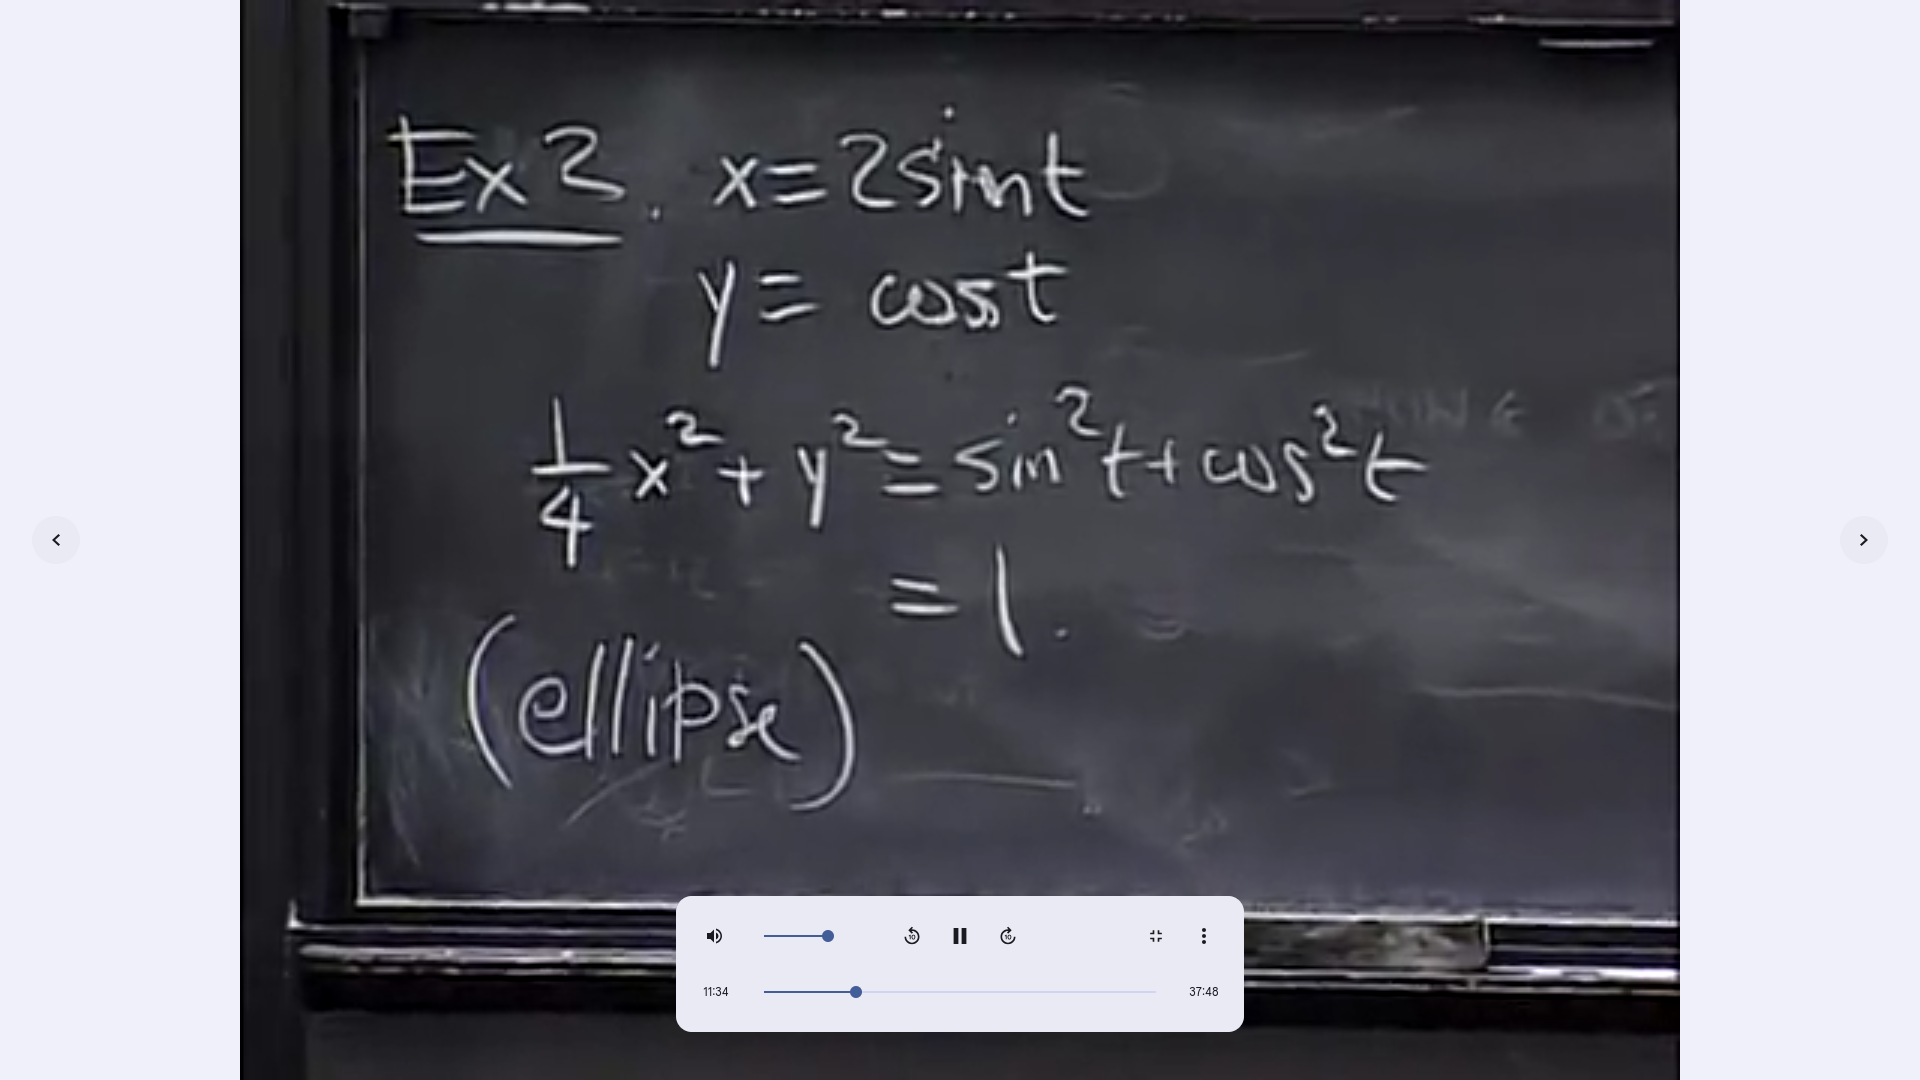 Ex 2. x = 2 sin t
y = cos t
1/4 x² + y² = sin² t + cos² t
= 1.
(ellipse)
10
10
11:34
37:48